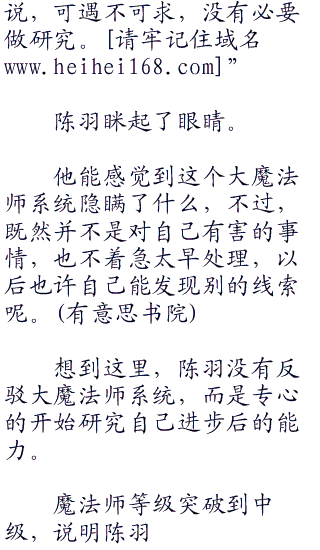 说，可遇不可求，没有必要
做研究。[请牢记住域名
www.heihei168.com]”
陈羽眯起了眼睛。
他能感觉到这个大魔法
师系统隐瞒了什么，不过，
既然并不是对自己有害的事
情，也不着急太早处理，以
后也许自己能发现别的线索
呢。(有意思书院)
想到这里，陈羽没有反
驳大魔法师系统，而是专心
的开始研究自己进步后的能
力。
魔法师等级突破到中
级，说明陈羽